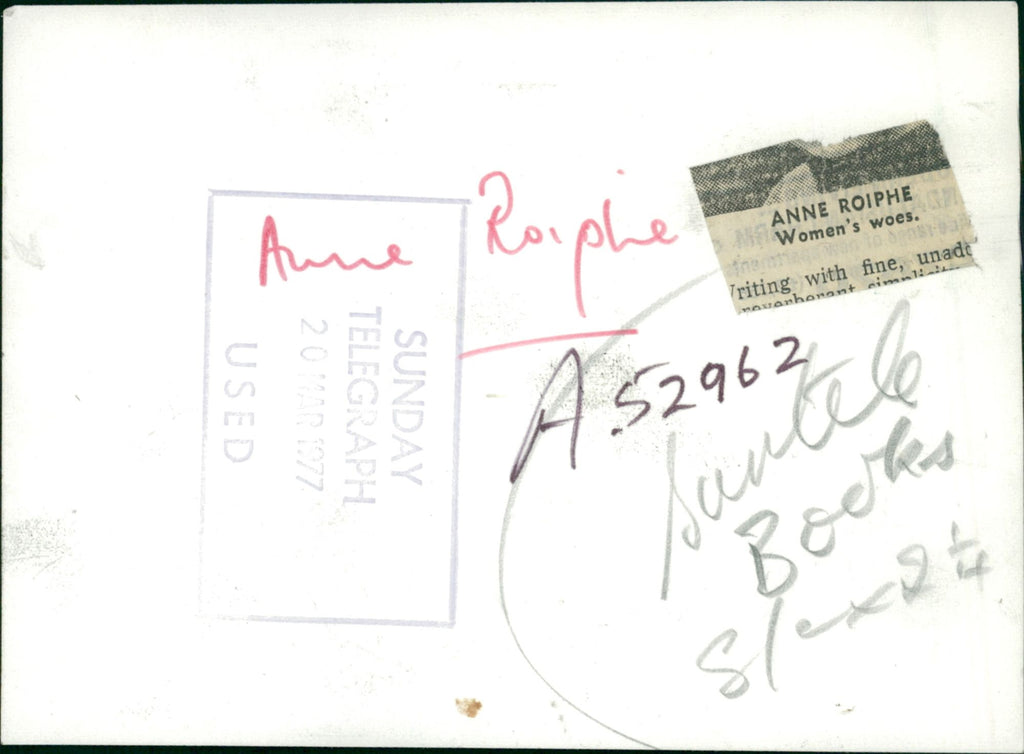 Anne Roiphe
SUNDAY
TELEGRAPH
20 MAR 1977
USED
ANNE ROIPHE
Women's woes.
riting with fine, unadd
reverberant simplicity
A 52962
Suntele
Books
S/c x 2 1/4